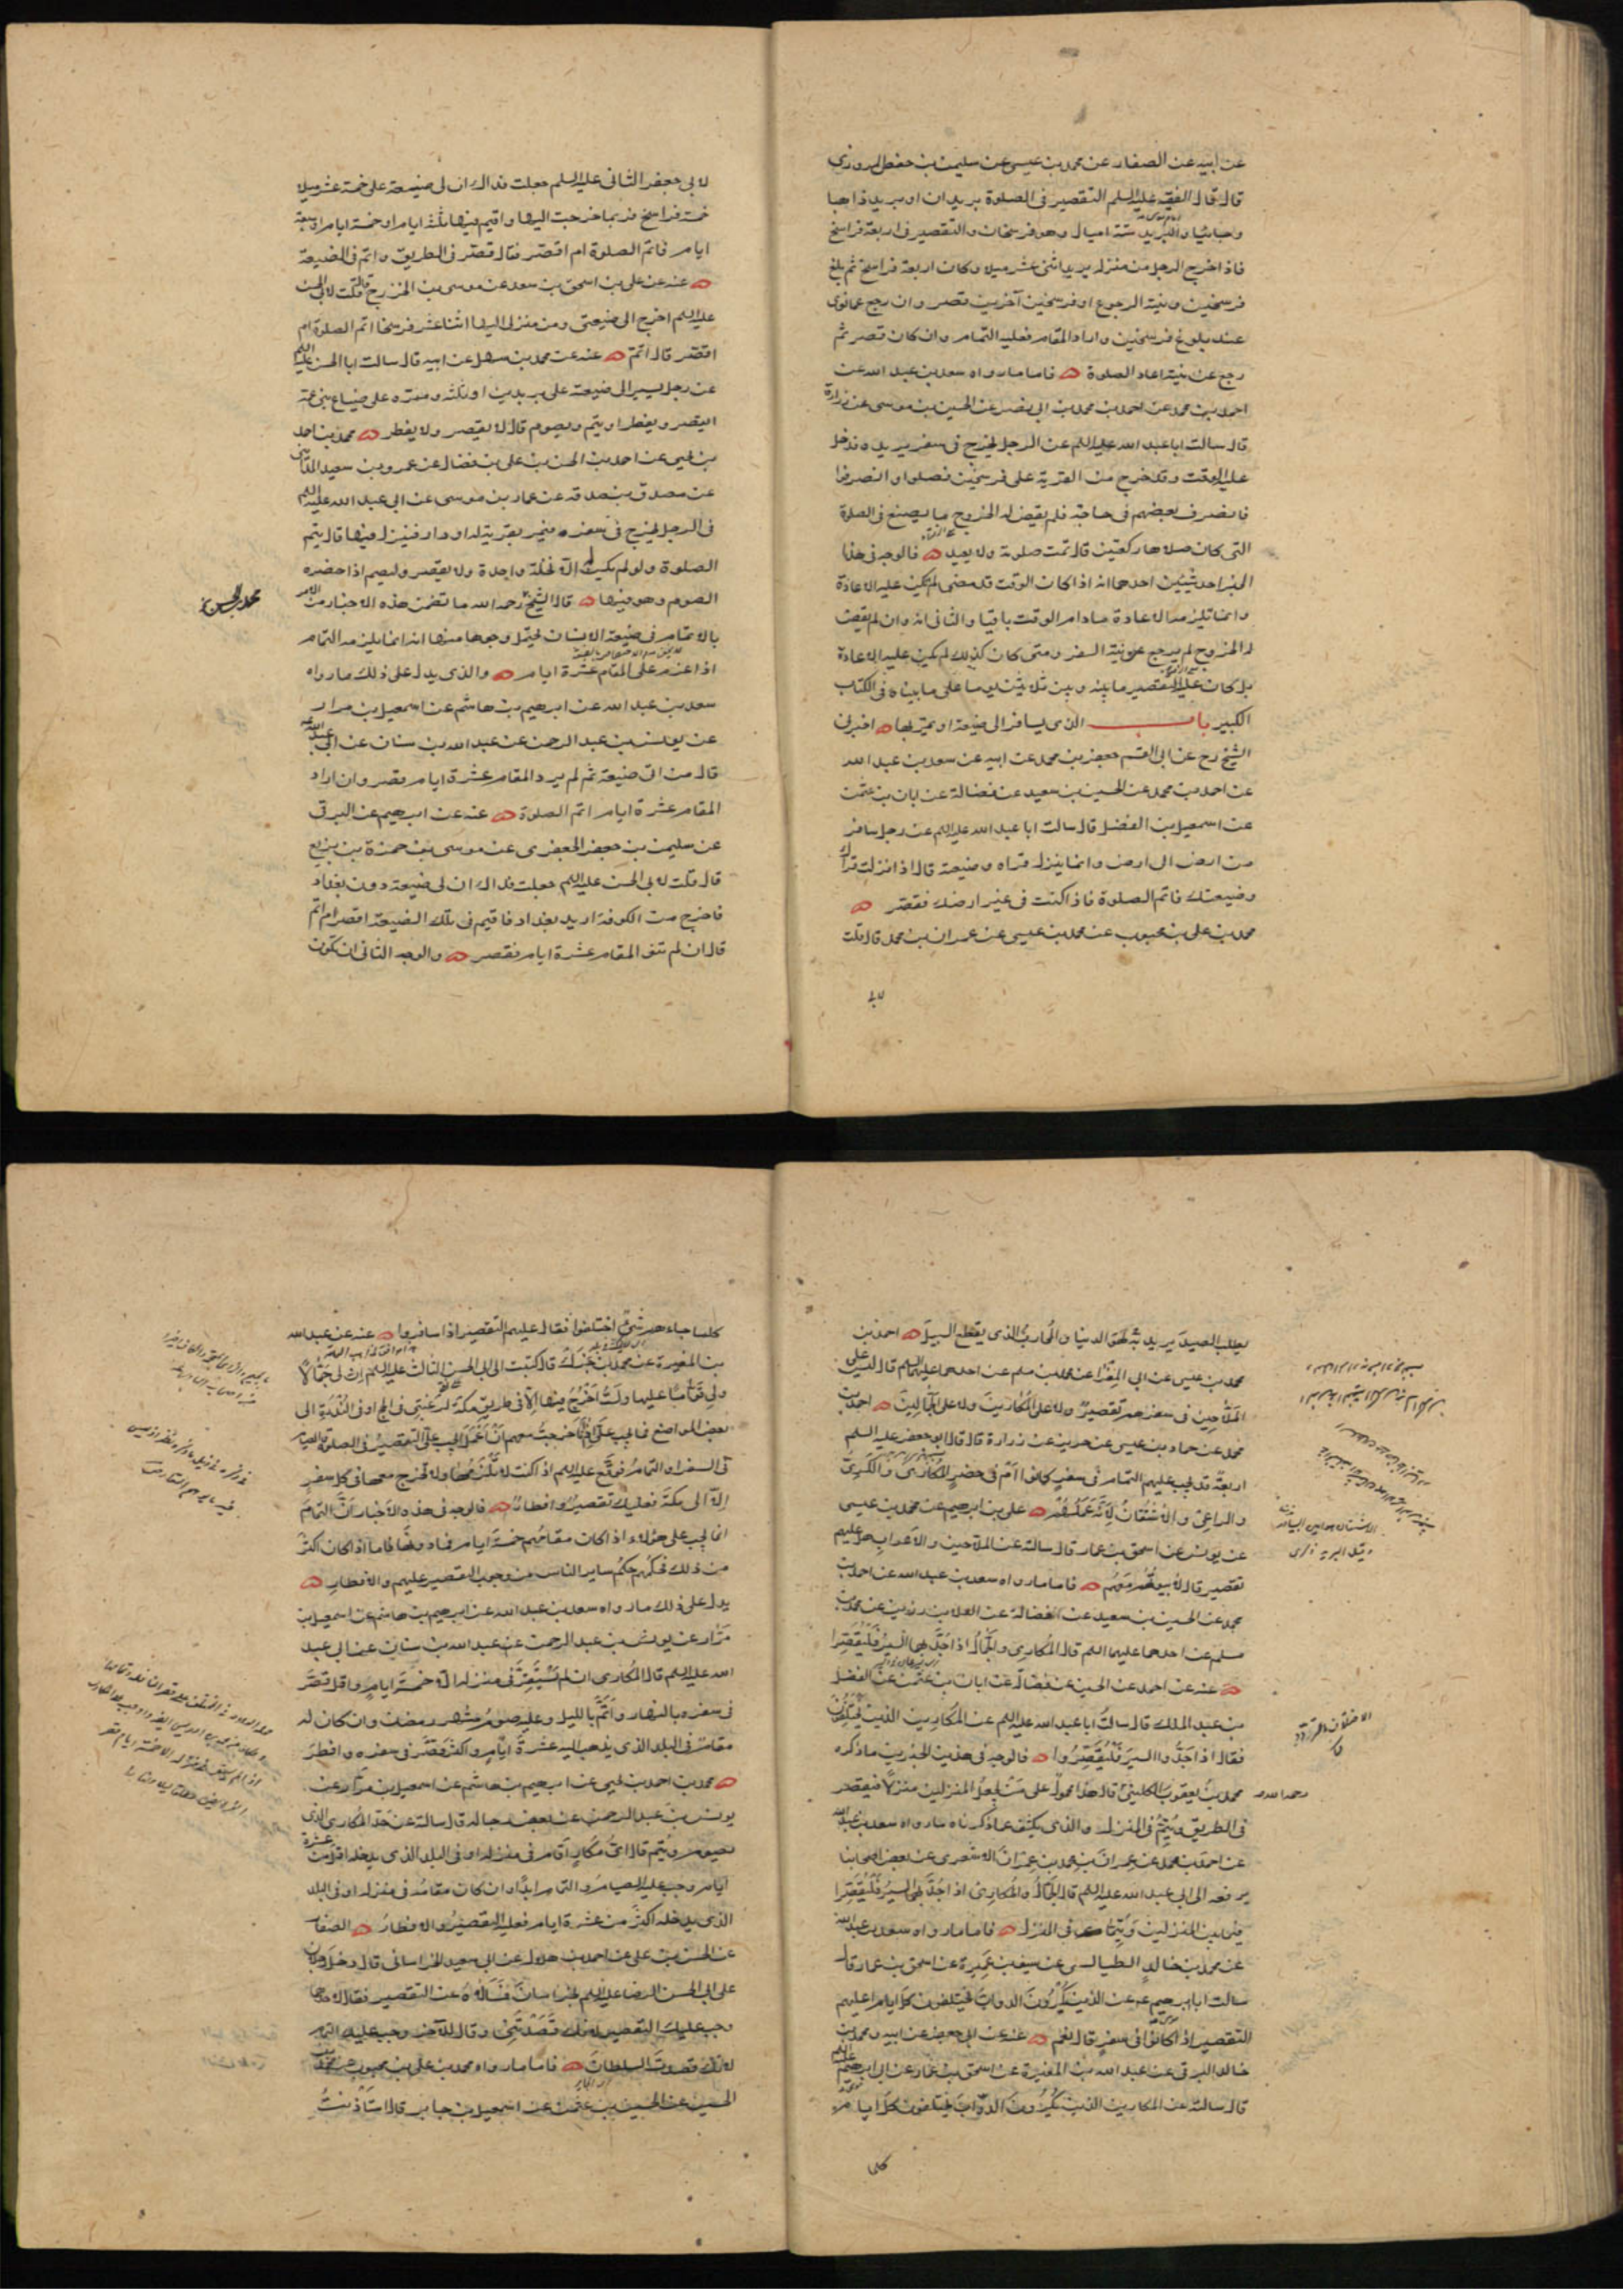 عن ابيه عن الصفار عن محمد بن عيسى عن سليمن بن حفص المروزي
قال قال الفقيه عليه السلم التقصير في الصلوة بريدان او بريد ذاهبا
وجائيا والبريد ستة اميال وهو فرسخان والتقصير في اربعة فراسخ
فاذا خرج الرجل من منزله يريد اثنى عشر ميلا وكان اربعة فراسخ ثم بلغ
فرسخين ونيته الرجوع او فرسخين آخرين قصر وان رجع عما نوى
عند بلوغ فرسخين واراد المقام فعليه التمام وان كان قصر ثم
رجع عن نيته اعاد الصلوة فاما ما رواه سعد بن عبد الله عن
احمد بن محمد عن احمد بن محمد بن ابي نصر عن الحسين بن موسى عن زرارة
قال سالت ابا عبد الله عليه السلم عن الرجل يخرج في سفر يريده فدخل
عليه الوقت وقد خرج من القرية على فرسخين فصلوا وانصرفوا
فانصرف بعضهم في حاجة فلم يقض له الخروج ما يصنع في الصلوة
التي كان صلاها ركعتين قال تمت صلوته ولا يعيد فالوجه في هذا
الخبر احد شيئين احدهما انه اذا كان الوقت قد مضى لم يكن عليه الاعادة
وانما تلزمه الاعادة ما دام الوقت باقيا والثاني انه وان لم يقض
له الخروج لم يرجع عن نية السفر ومتى كان كذلك لم يكن عليه الاعادة
بل كان عليه التقصير ما بينه وبين ثلاثين يوما على ما بيناه في الكتاب
الكبير باب الذي يسافر الى ضيعته او يمر بها اخبرني
الشيخ رح عن ابي القسم جعفر بن محمد عن ابيه عن سعد بن عبد الله
عن احمد بن محمد عن الحسين بن سعيد عن فضالة عن ابان بن عثمن
عن اسمعيل بن الفضل قال سالت ابا عبد الله عليه السلم عن رجل سافر
من ارض الى ارض وانما ينزل قراه وضيعته قال اذا نزلت قراك
وضيعتك فاتم الصلوة فاذا كنت في غير ارضك فقصر
محمد بن علي بن محبوب عن محمد بن عيسى عن عمران بن محمد قال قلت
لابي
لابي جعفر الثاني عليه السلم جعلت فداك ان لي ضيعة على خمسة عشر ميلا
خمسة فراسخ فربما خرجت اليها واقيم فيها ثلثة ايام او خمسة ايام او سبعة
ايام فاتم الصلوة ام اقصر فقال قصر في الطريق واتم في الضيعة
عنه عن علي بن اسحق بن سعد عن موسى بن الخزرج قال قلت لابي الحسن
عليه السلم اخرج الى ضيعتي ومن منزلي اليها اثنا عشر فرسخا اتم الصلوة ام
اقصر قال اتم عنه عن محمد بن سهل عن ابيه قال سالت ابا الحسن عليه السلم
عن رجل يسير الى ضيعته على بريدين او ثلثة وممره على ضياع بني عمه
ايقصر ويفطر او يتم ويصوم قال لا يقصر ولا يفطر محمد بن احمد
بن يحيى عن احمد بن الحسن بن علي بن فضال عن عمرو بن سعيد المدائني
عن مصدق بن صدقة عن عمار بن موسى عن ابي عبد الله عليه السلم
في الرجل يخرج في سفره فيمر بقرية له او دار فينزل فيها قال يتم
الصلوة ولو لم يكن له الا نخلة واحدة ولا يقصر وليصم اذا حضره
الصوم وهو فيها قال الشيخ رحمه الله ما تضمن هذه الاخبار من الامر
محمد بن الحسن
بالاتمام في ضيعة الانسان يحتمل وجوها منها انه انما يلزمه التمام
اذا عزم على المقام عشرة ايام والذي يدل على ذلك ما رواه
سعد بن عبد الله عن ابرهيم بن هاشم عن اسمعيل بن مرار
عن يونس بن عبد الرحمن عن عبد الله بن سنان عن ابي عبد الله
قال من اتى ضيعته ثم لم يرد المقام عشرة ايام قصر وان اراد
المقام عشرة ايام اتم الصلوة عنه عن ابرهيم عن البرقي
عن سليمن بن جعفر الجعفري عن موسى بن حمزة بن بزيع
قال قلت لابي الحسن عليه السلم جعلت فداك ان لي ضيعة دون بغداد
فاخرج من الكوفة اريد بغداد فاقيم في تلك الضيعة اقصر ام اتم
قال ان لم تنو المقام عشرة ايام فقصر والوجه الثاني ان يكون
يطلب الصيد يريد به لهو الدنيا والمحارب الذي يقطع السبيل احمد بن
محمد بن عيسى عن ابي المغرا عن محمد بن مسلم عن احدهما عليهما السلم قال ليس على
الملاحين في سفرهم تقصير ولا على المكارين ولا على الجمالين احمد بن
محمد عن حماد بن عيسى عن حريز عن زرارة قال قال ابو جعفر عليه السلم
اربعة قد يجب عليهم التمام في سفر كانوا ام في حضر المكاري والكري
والراعي والاشتقان لانه عملهم علي بن ابرهيم عن محمد بن عيسى
عن يونس عن اسحق بن عمار قال سالته عن الملاحين والاعراب هل عليهم
تقصير قال لا بيوتهم معهم فاما ما رواه سعد بن عبد الله عن احمد بن
محمد عن الحسين بن سعيد عن فضالة عن العلا بن رزين عن محمد بن
مسلم عن احدهما عليهما السلم قال المكاري والجمال اذا جد بهما السير فليقصرا
عنه عن احمد عن الحسين عن فضالة عن ابان بن عثمن عن الفضل
بن عبد الملك قال سالت ابا عبد الله عليه السلم عن المكارين الذين يختلفون
فقال اذا جدوا السير فليقصروا فالوجه في هذين الخبرين ما ذكره
محمد بن يعقوب الكليني قال هذا محمول على من يجعل المنزلين منزلا فيقصر
رحمه الله
في الطريق ويتم في المنزل والذي يكشف عما ذكرناه ما رواه سعد بن عبد الله
عن احمد بن محمد عن عمران بن محمد بن عمران الاشعري عن بعض اصحابنا
يرفعه الى ابي عبد الله عليه السلم قال الجمال والمكاري اذا جد بهما السير فليقصرا
فيما بين المنزلين ويتما في المنزل فاما ما رواه سعد بن عبد الله
عن محمد بن خالد الطيالسي عن سيف بن عميرة عن اسحق بن عمار قال
سالت ابا ابرهيم ع عن الذين يكرون الدواب يختلفون كل ايام اعليهم
التقصير اذا كانوا في سفر قال نعم عنه عن ابي جعفر عن ابيه ومحمد بن
خالد البرقي عن عبد الله بن المغيرة عن اسحق بن عمار عن ابي ابرهيم عليه السلم
قال سالته عن المكارين الذين يكرون الدواب يختلفون كل ايام
كلما
كلما جاءهم شيء اختلفوا فقال عليهم التقصير اذا سافروا عنه عن عبد الله
بن المغيرة عن محمد بن جزك قال كتبت الى ابي الحسن الثالث عليه السلم ان لي جمالا
ولي قوام عليها ولست اخرج فيها الا في طريق مكة لرغبتي في الحج او في الندرة الى
بعض المواضع فما يجب علي اذا خرجت معهم ان اعمل ايجب علي التقصير في الصلوة والصيام
في السفر او التمام فوقع عليه السلم اذا كنت لا تلزمها ولا تخرج معها في كل سفر
الا الى مكة فعليك تقصير وافطار فالوجه في هذه الاخبار ان التمام
انما يجب على هؤلاء اذا كان مقامهم خمسة ايام فما دونها فاما اذا كان اكثر
من ذلك فحكمهم حكم ساير الناس من وجوب التقصير عليهم والافطار
يدل على ذلك ما رواه سعد بن عبد الله عن ابرهيم بن هاشم عن اسمعيل بن
مرار عن يونس بن عبد الرحمن عن عبد الله بن سنان عن ابي عبد
الله عليه السلم قال المكاري ان لم يستقر في منزله الا خمسة ايام واقل قصر
في سفره بالنهار واتم بالليل وعليه صوم شهر رمضان وان كان له
مقام في البلد الذي يذهب اليه عشرة ايام واكثر قصر في سفره وافطر
محمد بن احمد بن يحيى عن ابرهيم بن هاشم عن اسمعيل بن مرار عن
يونس بن عبد الرحمن عن بعض رجاله قال سالته عن حد المكاري الذي
يصوم ويتم قال ايما مكار اقام في منزله او في البلد الذي يدخله اقل من عشرة
ايام وجب عليه الصيام والتمام ابدا وان كان مقامه في منزله او في البلد
الذي يدخله اكثر من عشرة ايام فعليه التقصير والافطار الصفار
عن الحسن بن علي عن احمد بن هلال عن ابي سعيد الخراساني قال دخل رجلان
على ابي الحسن الرضا عليه السلم بخراسان فسالاه عن التقصير فقال لاحدهما
وجب عليك التقصير لانك قصدتني وقال للآخر وجب عليك التمام
لانك قصدت السلطان فاما ما رواه محمد بن علي بن محبوب عن محمد بن
الحسين عن الحسين بن عثمن عن اسمعيل بن جابر قال استاذنت